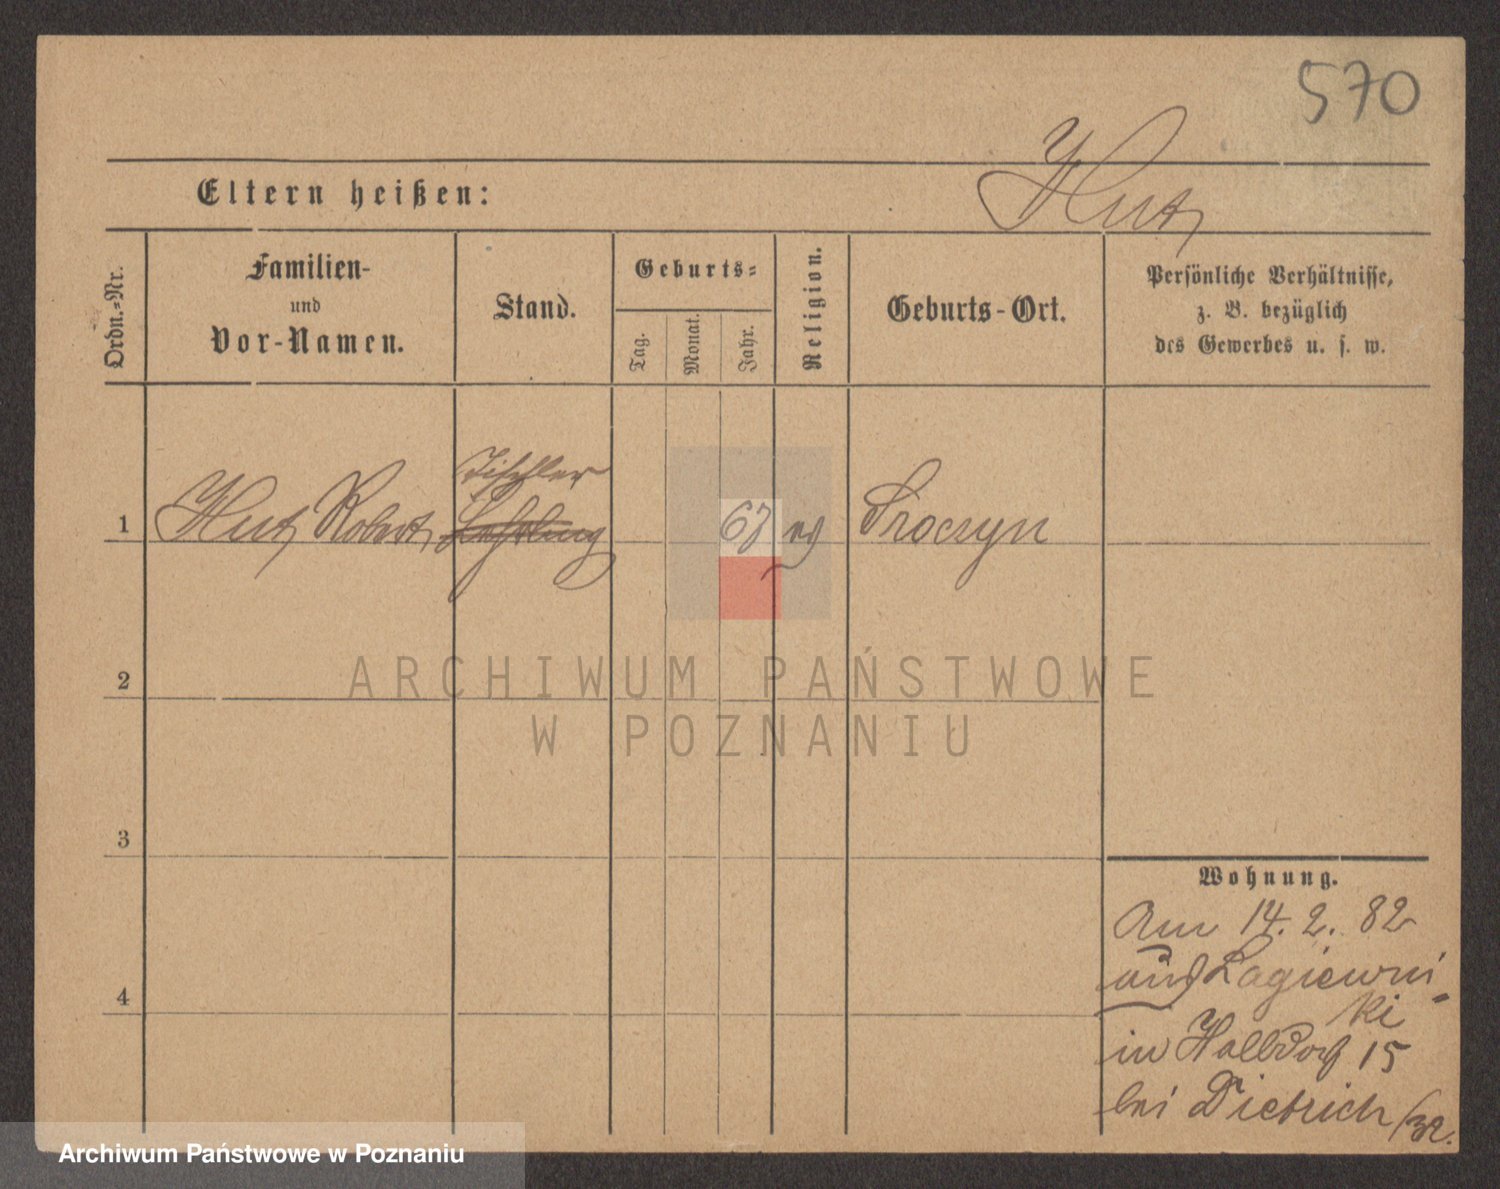 570
Hut
Eltern heißen:
Ordn.-Nr.
Familien-
und
Vor-Namen.
Stand.
Geburts-
Tag.
Monat.
Jahr.
Religion.
Geburts-Ort.
Persönliche Verhältnisse,
z. B. bezüglich
des Gewerbes u. s. w.
Tischler
1 Hut Robert Lehrling 67 ev Sroczyn
2
3
4
Wohnung.
Am 14. 2. 82
aus Lagiewni-
ki
in Halbdorf 15
bei Dietrich
ARCHIWUM PAŃSTWOWE
W POZNANIU
Archiwum Państwowe w Poznaniu